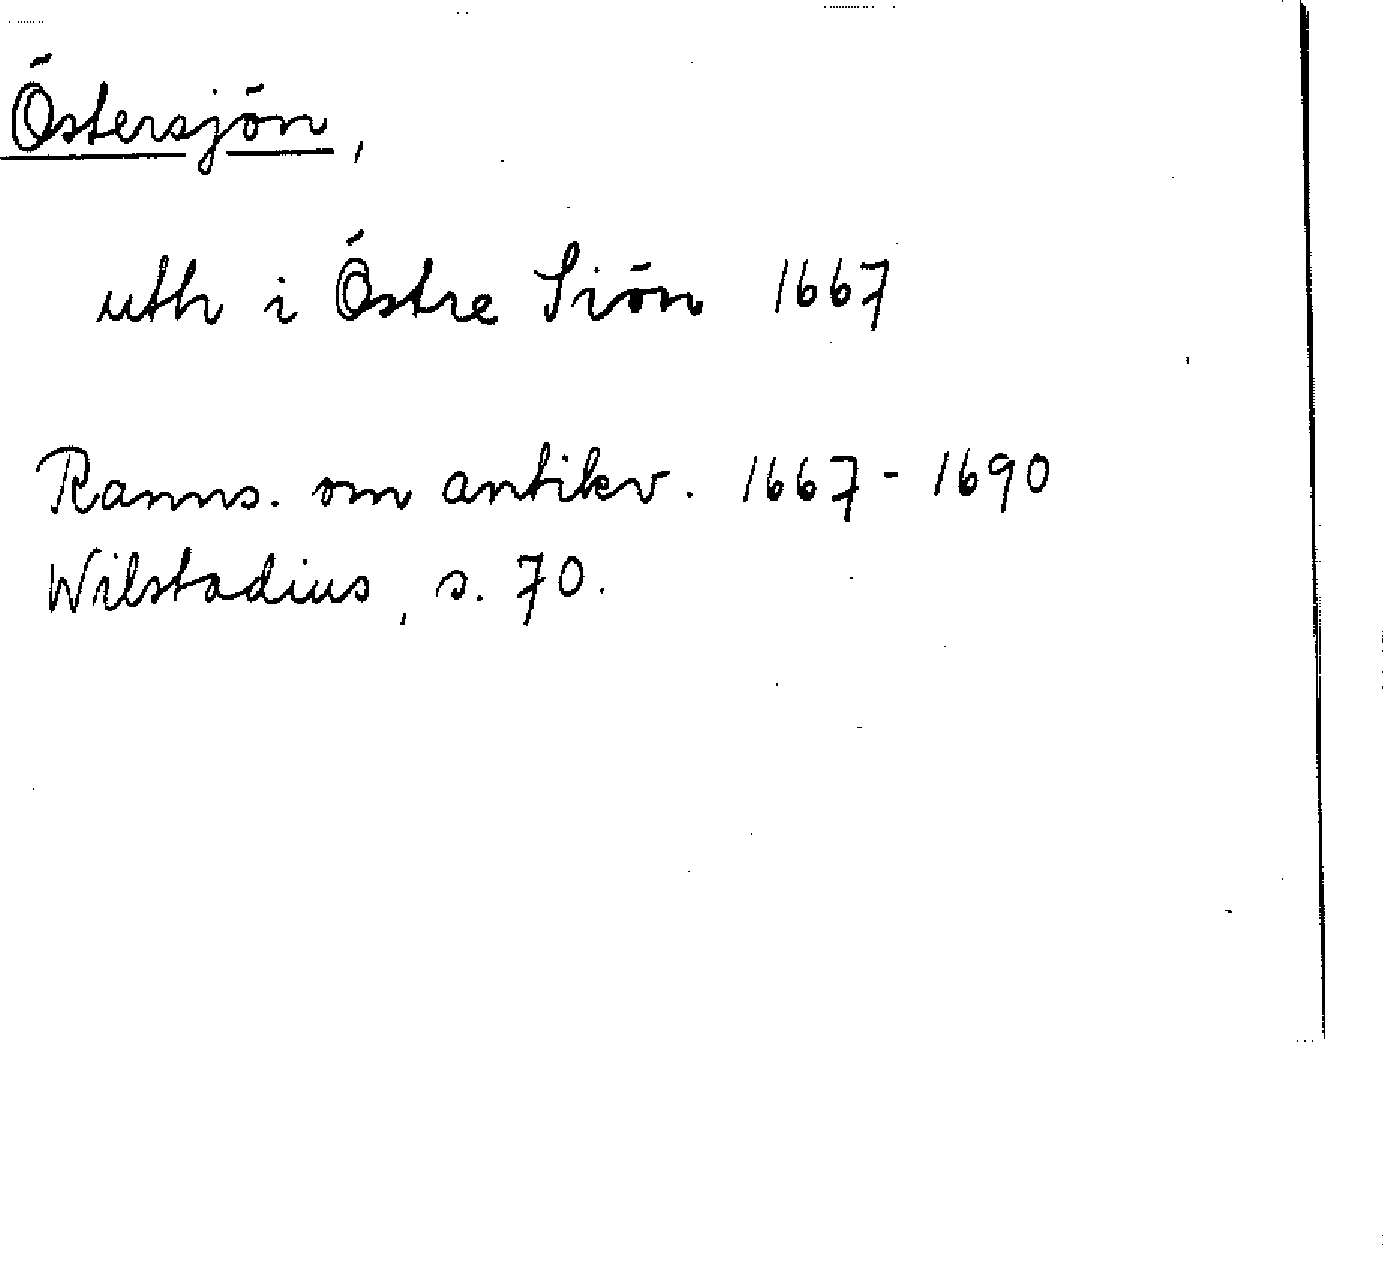 Östersjön,
uth i Östre Siön 1667
Ranns. om antikv. 1667 - 1690
Wilstadius, s. 70.